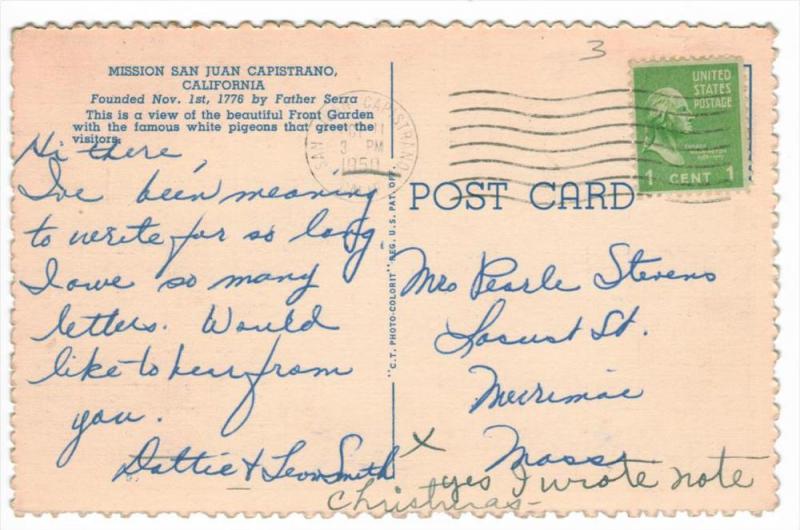 MISSION SAN JUAN CAPISTRANO,
CALIFORNIA
Founded Nov. 1st, 1776 by Father Serra
This is a view of the beautiful Front Garden
with the famous white pigeons that greet the
visitors.
Hi there,
I've been meaning
to write for so long
I owe so many
letters. Would
like to hear from
you.
Dottie & Leon Smith
3
SAN JUAN CAPISTRANO
11
3 PM
1950
CALIF
UNITED
STATES
POSTAGE
1 CENT 1
POST CARD
"C.T. PHOTO-COLORIT" REG. U.S. PAT. OFF.
Mrs Pearle Stevens
Locust St.
Merrimac
Mass.
x yes I wrote note
Christmas-